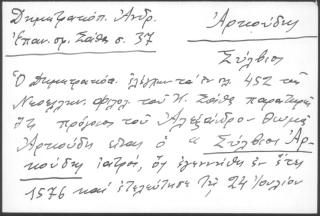 Δημητρακόπ. Ἀνδρ.
Ἐπαν. σφ. Σάθα σ. 37
Ἀρκούδης
Σύλβιος
Ὁ Δημητρακόπ. ἐλέγχων τὰ ἐν σελ. 452 τῆς
Νεοελλην. φιλολ. τοῦ Κ. Σάθα παρατηρεῖ
ὅτι πρόγονος τοῦ Ἀλεξάνδρο- Θωμᾶ
Ἀρκούδη εἶναι ὁ Σύλβιος Ἀρ-
κούδης ἰατρός, ὃς ἐγεννήθη ἐν ἔτει
1576 καὶ ἐτελεύτησε τῇ 24 Ἰουλίου